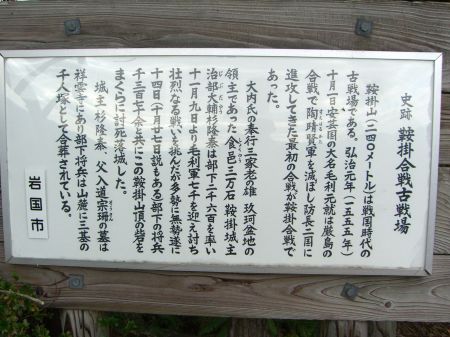 史跡 鞍掛合戦古戦場
鞍掛山(二四〇メートル)は戦国時代の
古戦場である。弘治元年(一五五五年)
十月一日安芸国の大名毛利元就は厳島の
合戦で陶晴賢軍を滅ぼし防長二国に
進攻してきた最初の合戦が鞍掛合戦で
あった。
大内氏の奉行三家老の雄 玖珂盆地の
領主であった食邑三万石鞍掛城主
治部大輔杉隆泰は部下二千六百を率い
十一月九日より毛利軍七千を迎え討ち
壮烈なる戦いを挑んだが多勢に無勢遂に
十四日(十月廿七日説もある)部下の将兵
千三百七余と共にこの鞍掛山頂の砦を
まくらに討死落城した。
城主杉隆泰、父入道宗珊の墓は
祥雲寺にあり部下将兵は山麓に三基の
千人塚として合葬されている。
岩国市